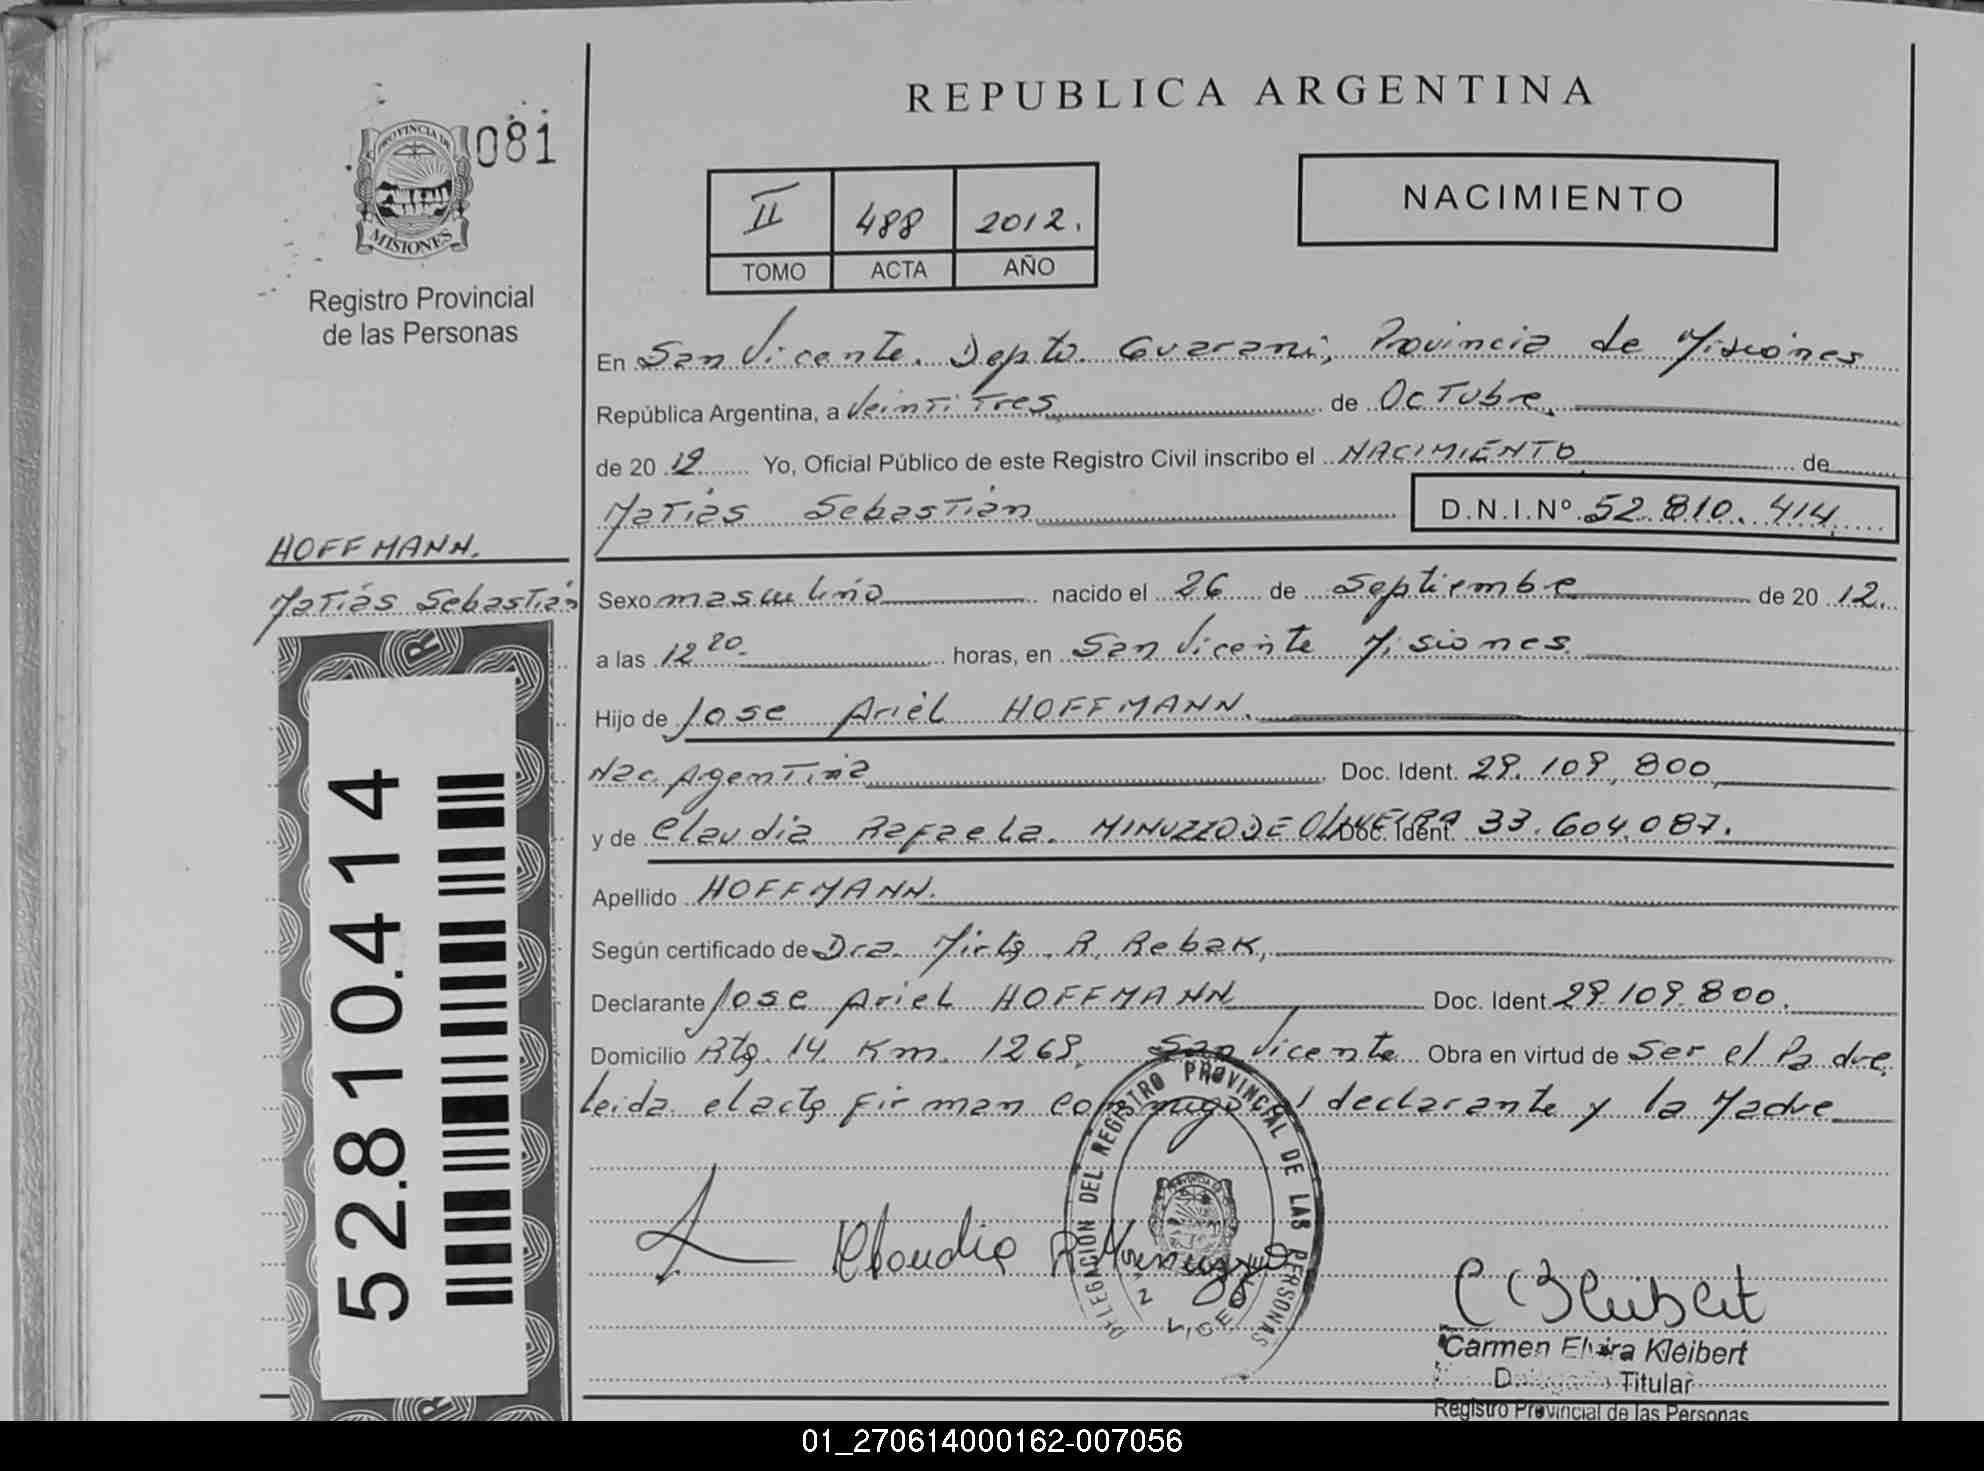 REPUBLICA ARGENTINA
PROVINCIA DE
MISIONES
081
Registro Provincial
de las Personas
II 488 2012.
TOMO ACTA AÑO
NACIMIENTO
En San Vicente. Depto. Guarani, Provincia de Misiones
República Argentina, a Veinti Tres de Octubre.
de 20 12 Yo, Oficial Público de este Registro Civil inscribo el NACIMIENTO de
Matias Sebastián
D.N.I.Nº 52.810.414
HOFFMANN.
Matiás Sebastián
Sexo masculino nacido el 26 de Septiembre de 20 12.
a las 12 20. horas, en San Vicente Misiones
Hijo de Jose Ariel HOFFMANN.
Nac. Argentina Doc. Ident. 29.109.800
y de Claudia Rafaela. MINUZZO DE OLIVEIRA Doc. Ident. 33.604.087.
Apellido HOFFMANN.
Según certificado de Dra. Mirta R. Rebak,
Declarante Jose Ariel HOFFMANN Doc. Ident. 29.109.800.
Domicilio Rta. 14 Km. 1269. San Vicente Obra en virtud de Ser el Padre.
Leida el acta firman conmigo el declarante y la Madre
52.810.414
DELEGACION DEL REGISTRO PROVINCIAL DE LAS PERSONAS
Klaudia R Minuzzo
C E Kleibert
Carmen Elvira Kleibert
Titular
Registro Provincial de las Personas
01_270614000162-007056